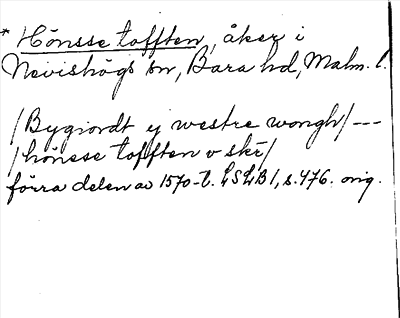 * Hönsse tofften, åker i
Nevishögs sn, Bara hd, Malm. l.
/Bygiordt ij westre wongh/ ---
/hönsse tofften v skt/
förra delen av 1570-t. LSLB 1, s. 476. orig.